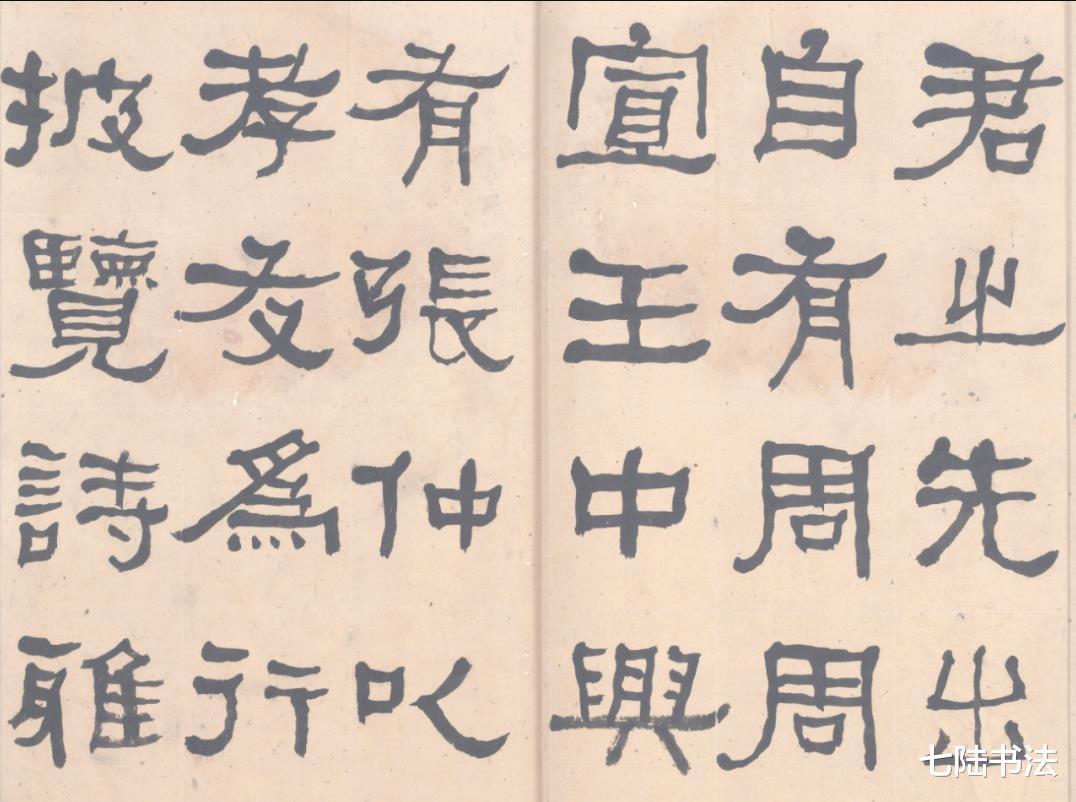 君之先出
自有周周
宣王中興
有張仲以
孝友爲行
披覽詩雅
七陆书法